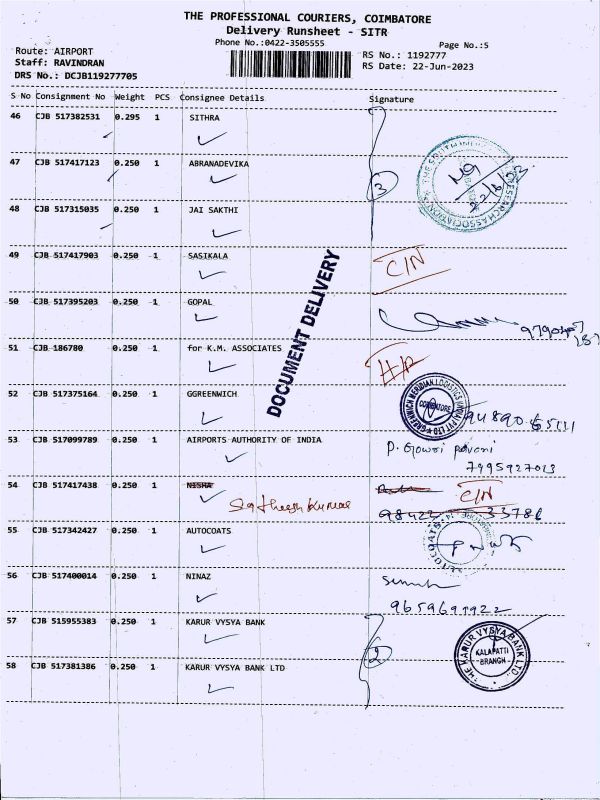 THE PROFESSIONAL COURIERS, COIMBATORE
Delivery Runsheet - SITR
Phone No.:0422-3505555
Page No.:5
Route: AIRPORT
RS No.: 1192777
Staff: RAVINDRAN
RS Date: 22-Jun-2023
DRS No.: DCJB119277705
S No Consignment No Weight PCS Consignee Details Signature
46 CJB 517382531 0.295 1 SITHRA
47 CJB 517417123 0.250 1 ABRANADEVIKA
3
48 CJB 517315035 0.250 1 JAI SAKTHI
49 CJB 517417903 0.250 1 SASIKALA
C/N
50 CJB 517395203 0.250 1 GOPAL
DOCUMENT DELIVERY
51 CJB 186780 0.250 1 for K.M. ASSOCIATES
52 CJB 517375164 0.250 1 GGREENWICH
GREENWICH MERIDIAN LOGISTICS (INDIA) PVT LTD
COIMBATORE
53 CJB 517099789 0.250 1 AIRPORTS AUTHORITY OF INDIA
P. Gowri pavani
7995927013
54 CJB 517417438 0.250 1 NISHA
Satheeshkumar
C/N
55 CJB 517342427 0.250 1 AUTOCOATS
56 CJB 517400014 0.250 1 NINAZ
57 CJB 515955383 0.250 1 KARUR VYSYA BANK
2
THE KARUR VYSYA BANK LTD.
KALAPATTI
BRANCH
58 CJB 517381386 0.250 1 KARUR VYSYA BANK LTD